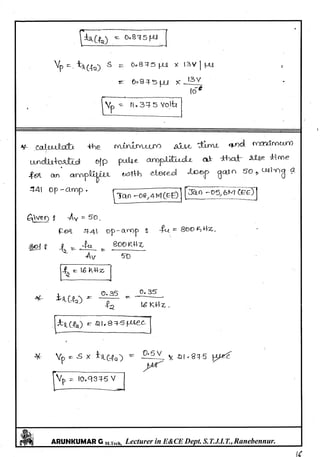 tr(f2) = 0.875 μs
Vp = tr(f2) S = 0.875 μs x 13V | μs
= 0.875 μs x 13V / 10-6
Vp = 11.375 Volts
* calculate the minimum rise time and maximum
undistorted o/p pulse amplitude at that rise time
for an amplifier with closed loop gain 50, using a
741 op-amp. Jan-08, 4M(EE) Jan-05, 6M(EE)
Given: Av = 50.
For 741 op-amp : fu = 800 KHz.
Sol: f2 = fu / Av = 800 KHz / 50
f2 = 16 KHz
* tr(f2) = 0.35 / f2 = 0.35 / 16 KHz.
tr(f2) = 21.875 μsec
* Vp = S x tr(f2) = 0.5V / μs x 21.875 μsec
Vp = 10.9375 V
ARUNKUMAR G M.Tech, Lecturer in E&CE Dept. S.T.J.I.T., Ranebennur.